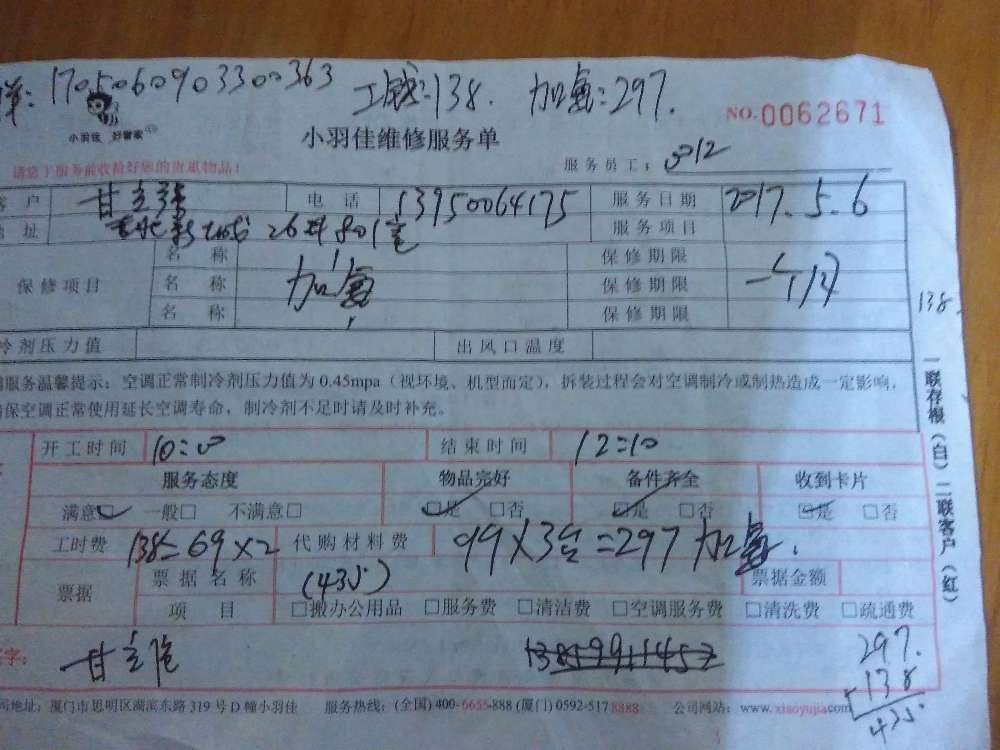 单: 1705060903300363 工钱:138. 加氟:297.
小羽佳 好管家
小羽佳维修服务单 NO.0062671
请您于服务前收拾好您的贵重物品! 服务员工: 3012
客户 电话 13950064175 服务日期 2017.5.6
地址 26 801室 服务项目
名称 保修期限
保修项目 名称 加氟 保修期限 一个月
名称 保修期限
138.
冷剂压力值 出风口温度
服务温馨提示:空调正常制冷剂压力值为0.45mpa(视环境、机型而定),拆装过程会对空调制冷或制热造成一定影响,
保空调正常使用延长空调寿命,制冷剂不足时请及时补充。
一联存根(白)二联客户(红)
开工时间 10:00 结束时间 12:10
服务态度 物品完好 备件齐全 收到卡片
满意□ 一般□ 不满意□ □是 □否 □是 □否 □是 □否
工时费 138=69×2 代购材料费 99×3台=297加氟.
票据 票据名称 (435) 票据金额
项目 □搬办公用品 □服务费 □清洁费 □空调服务费 □清洗费 □疏通费
字: 13859911453 297.
+138
435
司地址:厦门市思明区湖滨东路319号D幢小羽佳 服务热线:(全国)400-6655-888(厦门)0592-5178888 公司网站:www.xiaoyujia.com